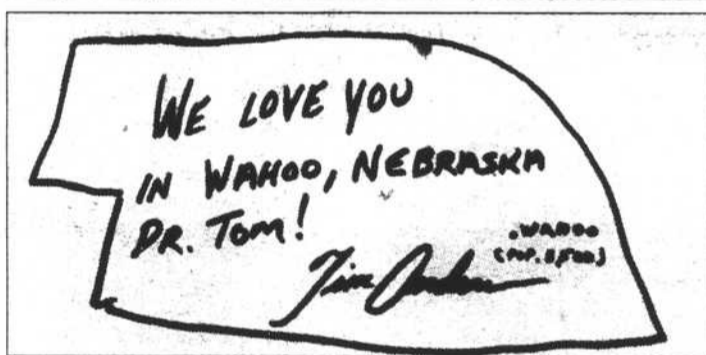 WE LOVE YOU
IN WAHOO, NEBRASKA
DR. TOM!
.WAHOO
(POP. 3,500)
Tim